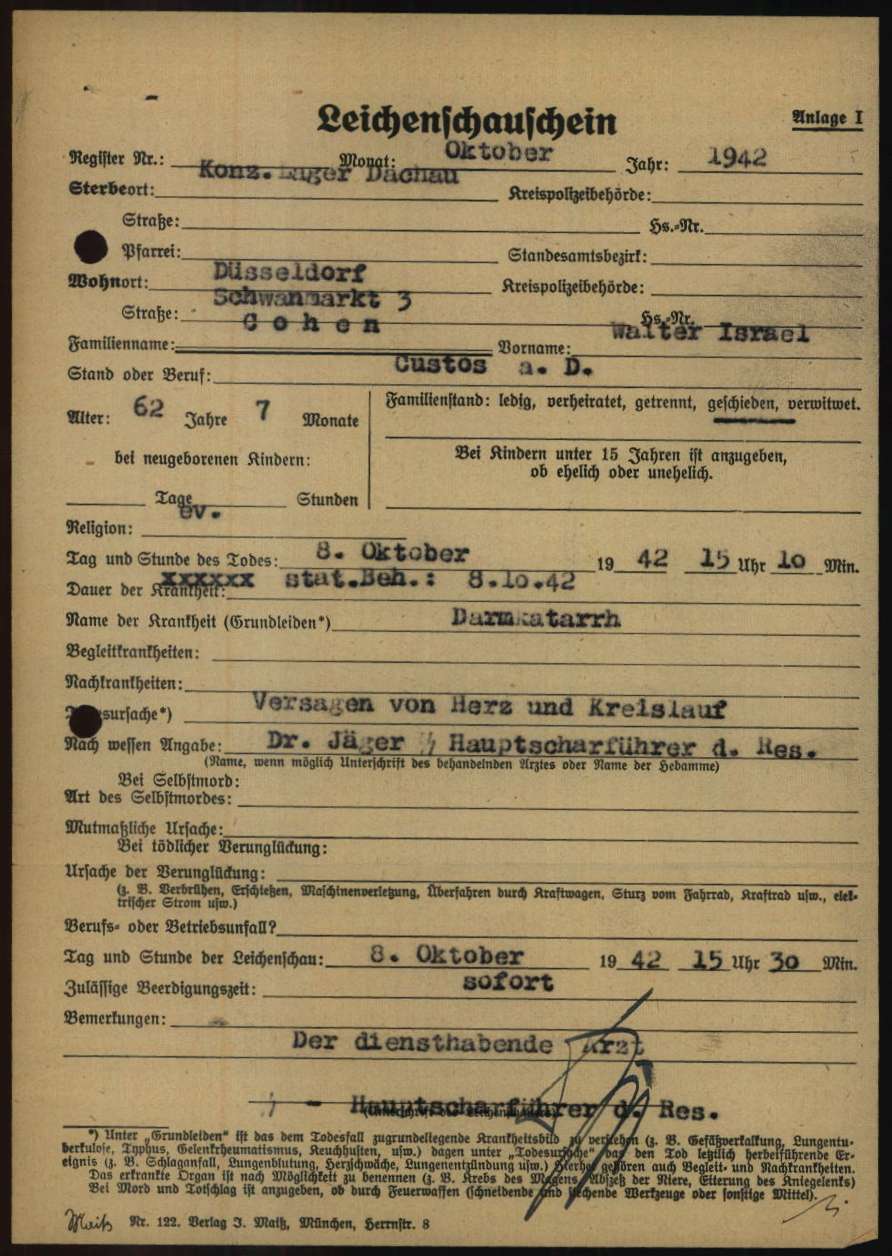 Leichenschauschein
Anlage I
Register Nr.: Monat: Oktober Jahr: 1942
Sterbeort: Konz. Lager Dachau Kreispolizeibehörde:
Straße: Hs.-Nr.
Pfarrei: Standesamtsbezirk:
Wohnort: Düsseldorf Kreispolizeibehörde:
Straße: Schwanmarkt 3 Hs.-Nr.
Familienname: Cohen Vorname: Walter Israel
Stand oder Beruf: Custos a. D.
Alter: 62 Jahre 7 Monate
Familienstand: ledig, verheiratet, getrennt, geschieden, verwitwet.
bei neugeborenen Kindern:
Bei Kindern unter 15 Jahren ist anzugeben,
ob ehelich oder unehelich.
Tage Stunden
Religion: ev.
Tag und Stunde des Todes: 8. Oktober 19 42 15 Uhr 10 Min.
Dauer der Krankheit: xxxxxx stat.Beh.: 8.10.42
Name der Krankheit (Grundleiden*) Darmkatarrh
Begleitkrankheiten:
Nachkrankheiten:
Todesursache*) Versagen von Herz und Kreislauf
Nach wessen Angabe: Dr. Jäger ᛋᛋ Hauptscharführer d. Res.
(Name, wenn möglich Unterschrift des behandelnden Arztes oder Name der Hebamme)
Bei Selbstmord:
Art des Selbstmordes:
Mutmaßliche Ursache:
Bei tödlicher Verunglückung:
Ursache der Verunglückung:
(z. B. Verbrühen, Erschießen, Maschinenverletzung, Überfahren durch Kraftwagen, Sturz vom Fahrrad, Kraftrad usw., elek-
trischer Strom usw.)
Berufs- oder Betriebsunfall?
Tag und Stunde der Leichenschau: 8. Oktober 19 42 15 Uhr 30 Min.
Zulässige Beerdigungszeit: sofort
Bemerkungen:
Der diensthabende Arzt
ᛋᛋ - Hauptscharführer d. Res.
*) Unter „Grundleiden“ ist das dem Todesfall zugrundeliegende Krankheitsbild zu verstehen (z. B. Gefäßverkalkung, Lungentu-
berkulose, Typhus, Gelenkrheumatismus, Keuchhusten, usw.) dagen unter „Todesursache“ das den Tod letztlich herbeiführende Er-
eignis (z. B. Schlaganfall, Lungenblutung, Herzschwäche, Lungenentzündung usw.) Hierher gehören auch Begleit- und Nachkrankheiten.
Das erkrankte Organ ist nach Möglichkeit zu benennen (z. B. Krebs des Magens, Abszeß der Niere, Eiterung des Kniegelenks)
Bei Mord und Totschlag ist anzugeben, ob durch Feuerwaffen (schneidende und stechende Werkzeuge oder sonstige Mittel).
Maiß Nr. 122. Verlag J. Maiß, München, Herrnstr. 8